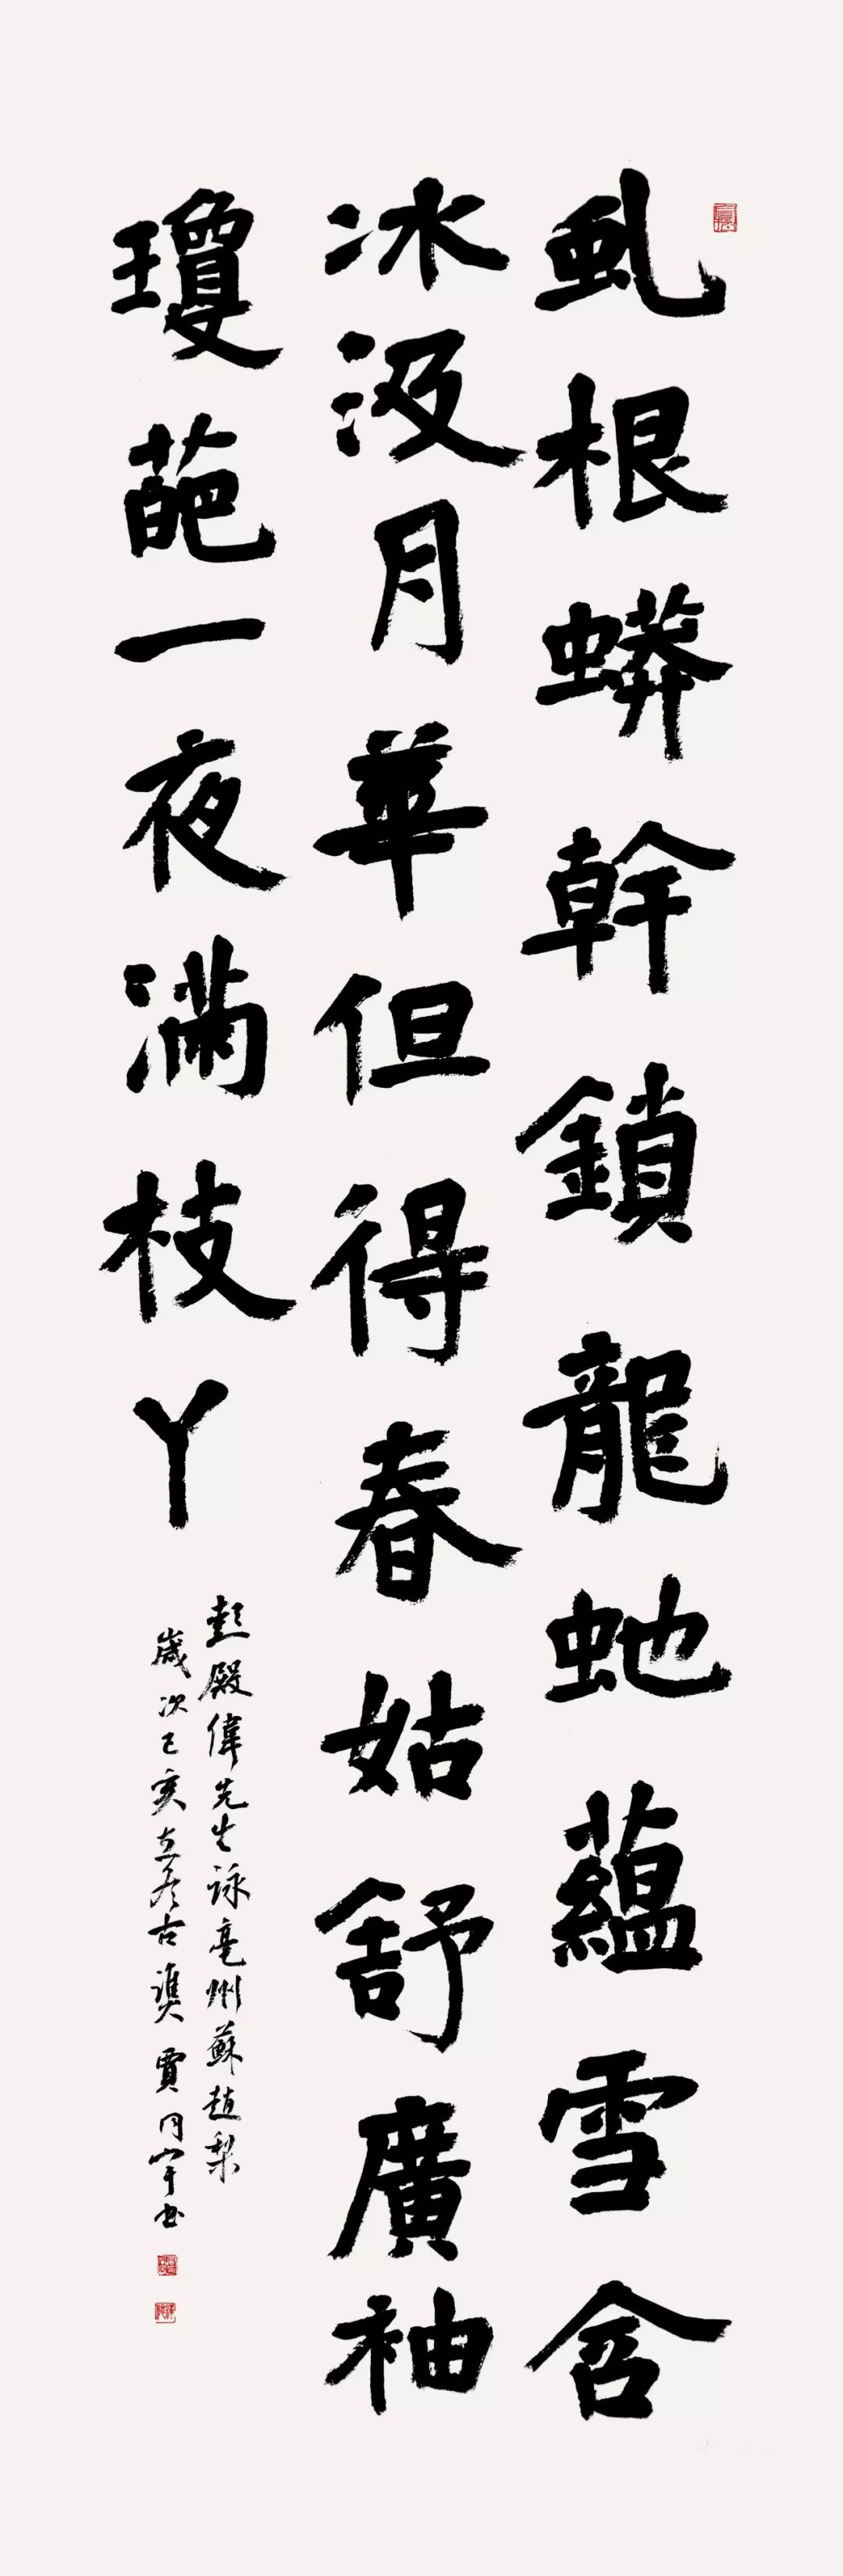 虬根蟒幹鎖龍虵蘊雪含
冰汲月華但得春姑舒廣袖
瓊葩一夜滿枝丫
彭殿偉先生詠亳州蘇趙梨
歲次己亥立冬古譙賈同宇書